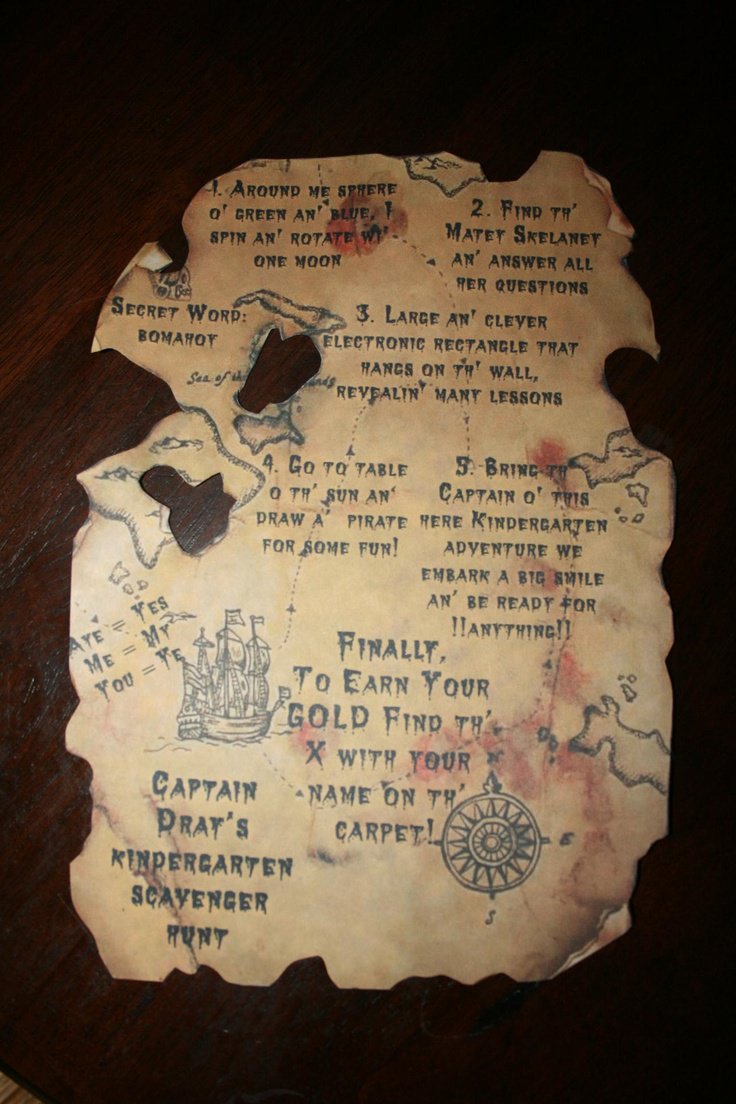 1. Around me sphere
o' green an' blue, I
spin an' rotate wi'
one moon
2. Find th'
Matey Skelaney
an' answer all
her questions
Secret Word:
bomahoy
3. Large an' clever
electronic rectangle that
hangs on th' wall,
revealin' many lessons
Sea of the
4. Go to table
o th' sun an'
draw a' pirate
for some fun!
5. Bring th'
Captain o' this
here Kindergarten
adventure we
embark a big smile
an' be ready for
!!anything!!
Aye = Yes
Me = My
You = Ye
Finally,
To Earn Your
GOLD Find th'
X with your
name on th'
carpet!
Captain
Drat's
kindergarten
scavenger
hunt
N
E
S